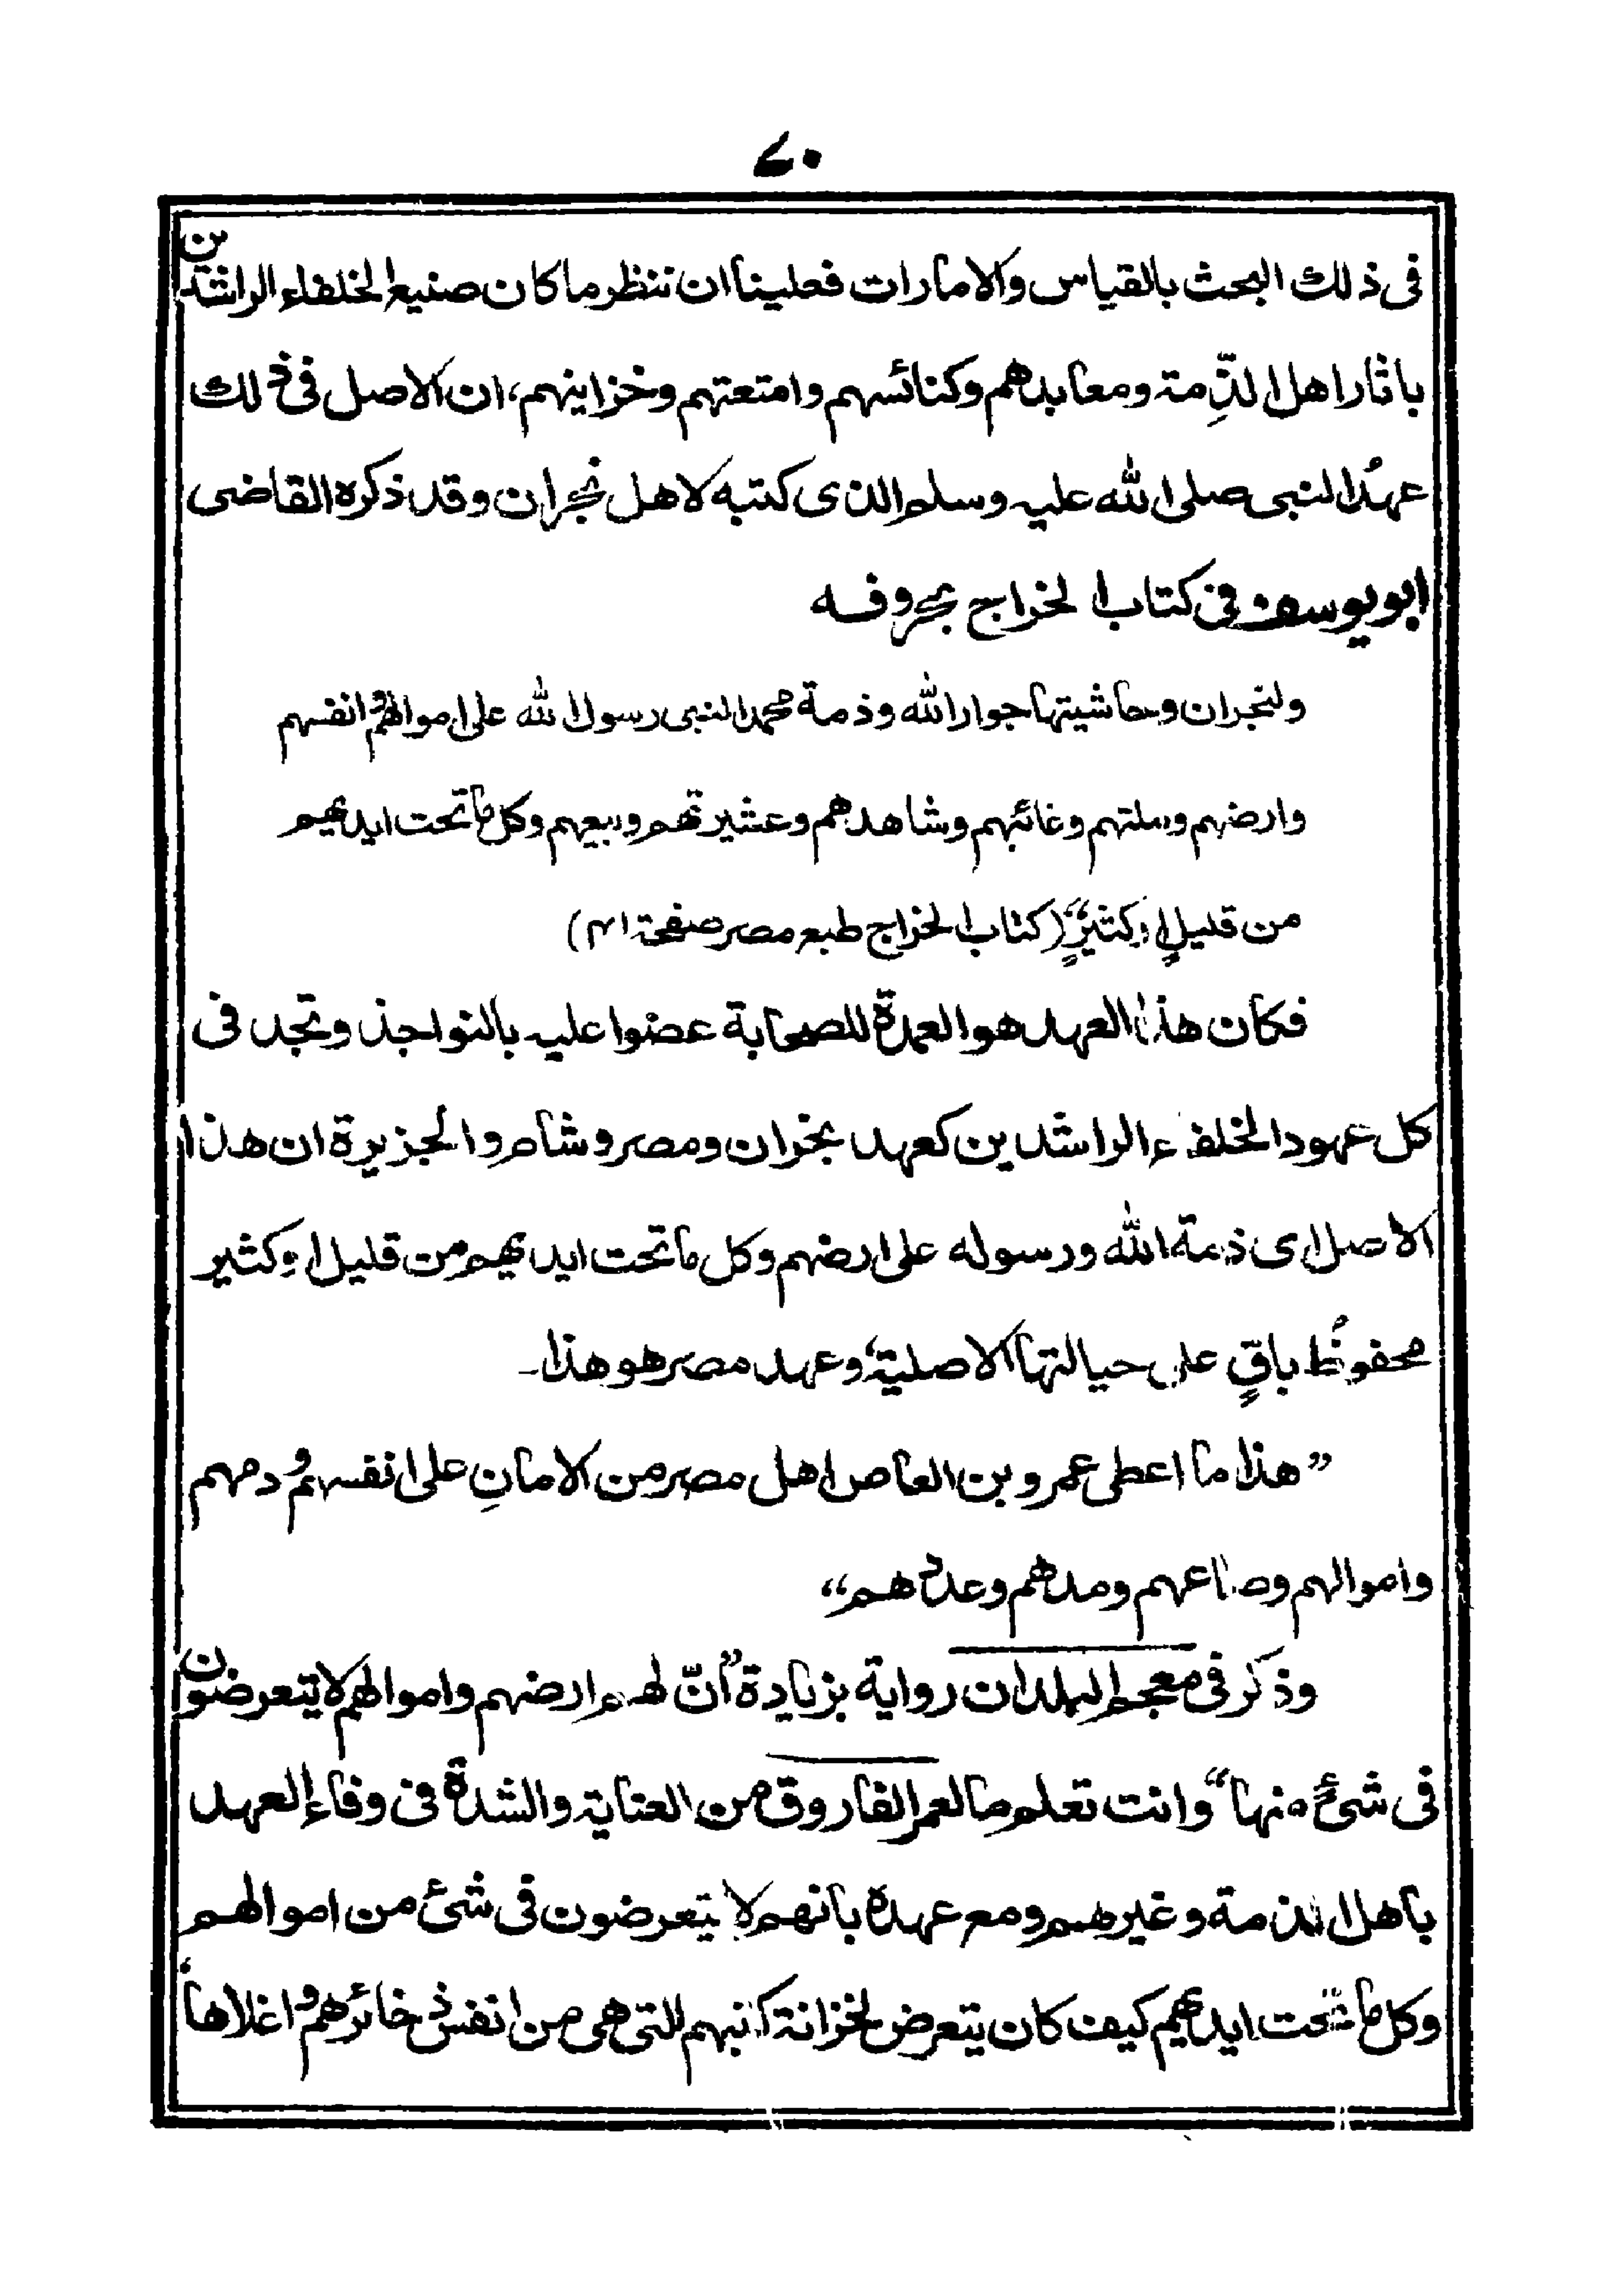 ٧٠
فى ذلك البحث بالقياس والامارات فعلينا ان ننظر ما كان صنيع الخلفاء الراشدين
باثار اهل الذِّمة ومعابدهم وكنائسهم وامتعتهم وخزاينهم، ان الاصل فى ذلك
عهدُ النبى صلى الله عليه وسلم الذى كتبه لاهل نجران وقد ذكره القاضى
ابو يوسف فى كتاب الخراج بحروفه
ولنجران وحاشيتها جوار الله وذمة محمد النبى رسول الله على اموالهم وانفسهم
وارضهم وملتهم وغائبهم وشاهدهم وعشيرتهم وبيعهم وكل ما تحت ايديهم
من قليلٍ او كثيرٍ“ (كتاب الخراج طبع مصر صفحة ٤١)
فكان هذا العهد هو العمدة للصحابة عضوا عليه بالنواجذ وتجد فى
كل عهود الخلفاء الراشدين كعهد بخران ومصر وشام والجزيرة ان هذا
الاصل اى ذمة الله ورسوله على ارضهم وكل ما تحت ايديهم من قليل او كثير
محفوظُ باقٍ على حيالتها الاصلية، وعهد مصر هو هذا۔
”هذا ما اعطى عمرو بن العاص اهل مصر من الامانِ على انفسهم ودمهم
واموالهم وصاعهم ومدهم وعددهم“
وذكر فى معجم البلدان رواية بزيادة ”انّ لهم ارضهم واموالهم لا يتعرضون
فى شئٍ منها“ وانت تعلم ما لعمر الفاروق من العناية والشدة فى وفاء العهد
باهل الذمة وغيرهم ومع عهدة بانهم لا يتعرضون فى شئ من اموالهم
وكل ما تحت ايديهم كيف كان يتعرض لخزانة كتبهم للتى هى من انفس ذخائرهم واغلاها،